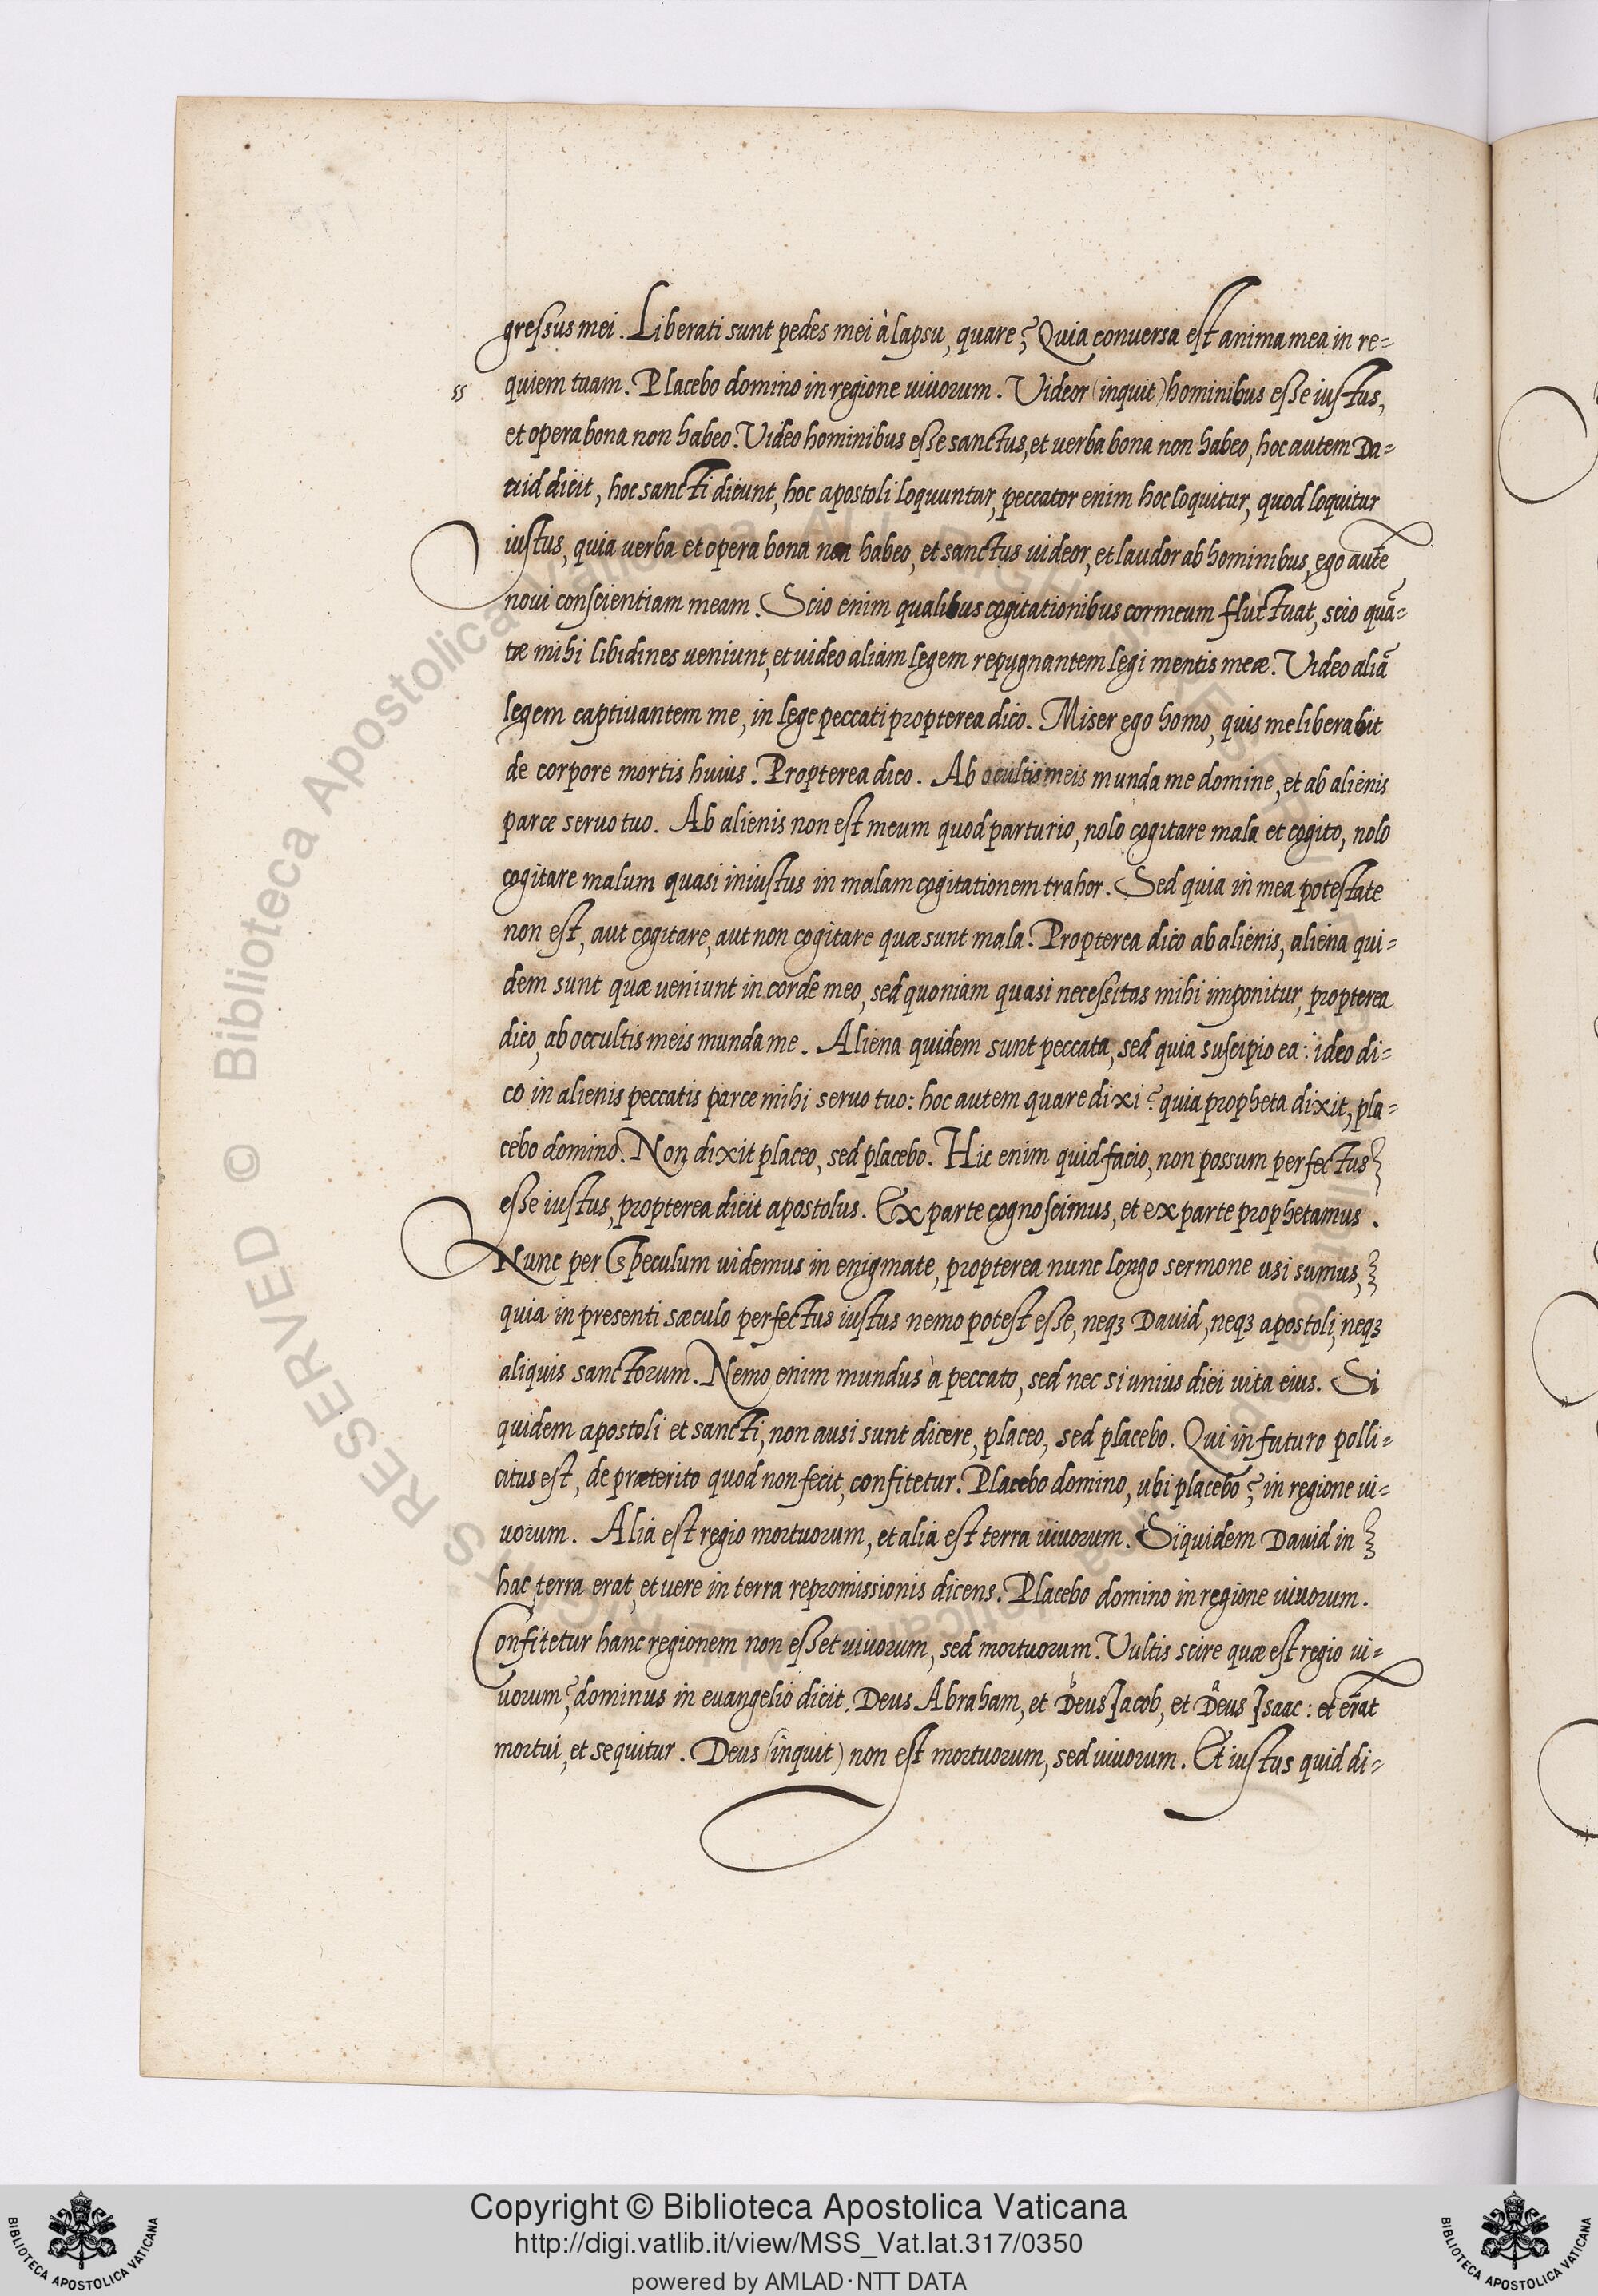 gressus mei. Liberati sunt pedes mei à lapsu, quare? Quia conversa est anima mea in re=
ss quiem tuam. Placebo domino in regione uiuorum. Videor (inquit) hominibus esse iustus,
et opera bona non habeo. Video hominibus esse sanctus, et uerba bona non habeo, hoc autem Da=
uid dicit, hoc sancti dicunt, hoc apostoli loquuntur, peccator enim hoc loquitur, quod loquitur
iustus, quia uerba et opera bona non habeo, et sanctus uideor, et laudor ab hominibus, ego autē
noui conscientiam meam. Scio enim qualibus cogitationibus cor meum fluctuat, scio quā=
tæ mihi libidines ueniunt, et uideo aliam legem repugnantem legi mentis meæ. Video aliā
legem captiuantem me, in lege peccati propterea dico. Miser ego homo, quis me liberabit
de corpore mortis huius. Propterea dico. Ab ocultis meis munda me domine, et ab alienis
parce seruo tuo. Ab alienis non est meum quod parturio, nolo cogitare mala et cogito, nolo
cogitare malum quasi iniustus in malam cogitationem trahor. Sed quia in mea potestate
non est, aut cogitare, aut non cogitare quæ sunt mala. Propterea dico ab alienis, aliena qui=
dem sunt quæ ueniunt in corde meo, sed quoniam quasi necessitas mihi imponitur, propterea
dico, ab occultis meis munda me. Aliena quidem sunt peccata, sed quia suscipio ea: ideo di=
co in alienis peccatis parce mihi seruo tuo: hoc autem quare dixi? quia propheta dixit, pla=
cebo domino. Non dixit placeo, sed placebo. Hic enim quid facio, non possum perfectus
esse iustus, propterea dicit apostolus. Ex parte cognoscimus, et ex parte prophetamus.
Nunc per speculum uidemus in enigmate, propterea nunc longo sermone usi sumus,
quia in presenti sæculo perfectus iustus nemo potest esse, neqꝫ David, neqꝫ apostoli, neqꝫ
aliquis sanctorum. Nemo enim mundus à peccato, sed nec si unius diei uita eius. Si
quidem apostoli et sancti, non ausi sunt dicere, placeo, sed placebo. Qui in futuro polli=
citus est, de præterito quod non fecit, confitetur. Placebo domino, ubi placebo? in regione ui=
uorum. Alia est regio mortuorum, et alia est terra uiuorum. Siquidem David in
hac terra erat, et uere in terra repromissionis dicens. Placebo domino in regione uiuorum.
Confitetur hanc regionem non esset uiuorum, sed mortuorum. Vultis scire quæ est regio ui=
uorum? dominus in euangelio dicit. Deus Abraham, et Deus Jacob, et Deus Isaac: et erāt
mortui, et sequitur. Deus (inquit) non est mortuorum, sed uiuorum. Et iustus quid di=
© Biblioteca Apostolica Vaticana
Copyright © Biblioteca Apostolica Vaticana
http://digi.vatlib.it/view/MSS_Vat.lat.317/0350
powered by AMLAD·NTT DATA
BIBLIOTECA APOSTOLICA VATICANA
BIBLIOTECA APOSTOLICA VATICANA